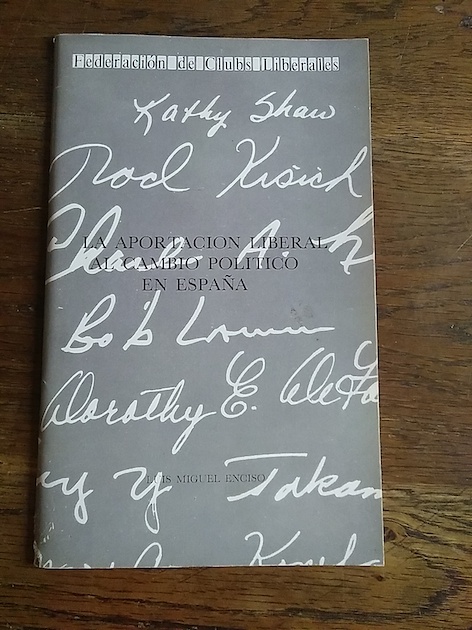 Federación de Clubs Liberales
Kathy Shaw
Noel Krsich
LA APORTACION LIBERAL
A. K
AL CAMBIO POLITICO
EN ESPAÑA
Bob
Dorothy E. DeFo
LUIS MIGUEL ENCISO
y y Takam